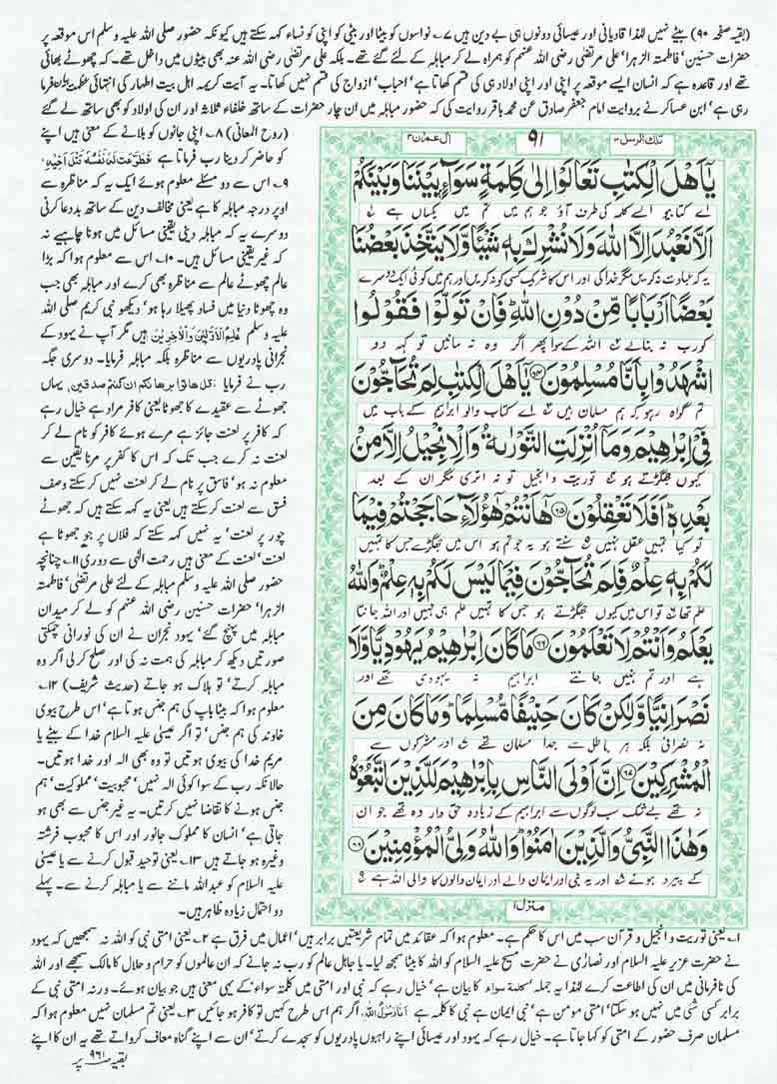 (بقیہ صفحہ ۹۰) بیٹے نہیں لہٰذا قادیانی اور عیسائی دونوں ہی بے دین ہیں ۷۔ نواسوں کو بیٹا اور بیٹی کو اپنی کو نساء کہہ سکتے ہیں کیونکہ حضور صلی اللہ علیہ وسلم اس موقعہ پر
حضرات حسنین' فاطمتہ الزہرا' علی مرتضیٰ رضی اللہ عنہم کو ہمراہ لے کر مباہلہ کے لئے گئے تھے۔ بلکہ علی مرتضیٰ رضی اللہ عنہ بھی بیٹوں میں داخل تھے۔ کہ چھوٹے بھائی
تھے اور قاعدہ ہے کہ انسان ایسے موقعہ پر اپنی اور اپنی اولاد ہی کی قسم کھاتا ہے' احباب' ازواج کی قسم نہیں کھاتا۔ یہ آیت کریمہ اہل بیت اطہار کی انتہائی عظمت بیان فرما
رہی ہے' ابن عساکر نے بروایت امام جعفر صادق عن محمد باقر روایت کی کہ حضور مباہلہ میں ان چار حضرات کے ساتھ خلفاء ثلاثہ اور ان کی اولاد کو بھی ساتھ لے گئے
(روح المعانی) ۸۔ اپنی جانوں کو بلانے کے معنی ہیں اپنے
کو حاضر کر دینا رب فرماتا ہے فَطَوَّعَتْ لَهٗ نَفْسُهٗ قَتْلَ اَخِیْهِ
۹۔ اس سے دو مسئلے معلوم ہوئے ایک یہ کہ مناظرہ سے
اوپر درجہ مباہلہ کا ہے یعنی مخالف دین کے ساتھ بددعا کرنی
دوسرے یہ کہ مباہلہ دینی یقینی مسائل میں ہونا چاہیے نہ
کہ غیر یقینی مسائل میں۔ ۱۰۔ اس سے معلوم ہوا کہ بڑا
عالم چھوٹے عالم سے مناظرہ بھی کرے اور مباہلہ بھی جب
وہ چھوٹا دنیا میں فساد پھیلا رہا ہو' دیکھو نبی کریم صلی اللہ
علیہ وسلم عَلِمَ الْاَوَّلِیْنَ وَالْاٰخِرِیْنَ ہیں مگر آپ نے یہود کے
نجرانی پادریوں سے مناظرہ بلکہ مباہلہ فرمایا۔ دوسری جگہ
رب نے فرمایا قل هاتوا برهانکم ان کنتم صدقین یہاں
جھوٹے سے عقیدے کا جھوٹا یعنی کافر مراد ہے خیال رہے
کہ کافر پر لعنت جائز ہے مرے ہوئے کافر کو نام لے کر
لعنت نہ کرے جب تک کہ اس کا کفر پر مرنا یقین سے
معلوم نہ ہو' فاسق پر نام لے کر لعنت نہیں کر سکتے وصف
فسق سے لعنت کر سکتے ہیں یعنی یہ کہہ سکتے ہیں کہ جھوٹے
چور پر لعنت' یہ نہیں کہہ سکتے کہ فلاں پر جو جھوٹا ہے
لعنت' لعنت کے معنی ہیں رحمت الٰہی سے دوری ۱۱۔ چنانچہ
حضور صلی اللہ علیہ وسلم مباہلہ کے لئے علی مرتضیٰ' فاطمتہ
الزہرا' حضرات حسنین رضی اللہ عنہم کو لے کر میدان
مباہلہ میں پہنچ گئے' یہود نجران نے ان کی نورانی چمکتی
صورتیں دیکھ کر مباہلہ کی ہمت نہ کی اور صلح کر لی اگر وہ
مباہلہ کرتے' تو ہلاک ہو جاتے (حدیث شریف) ۱۲۔
معلوم ہوا کہ بیٹا باپ کی ہم جنس ہوتا ہے' اس طرح بیوی
خاوند کی ہم جنس' تو اگر عیسیٰ علیہ السلام خدا کے بیٹے یا
مریم خدا کی بیوی ہوتیں تو وہ بھی الہ اور خدا ہوتیں۔
حالانکہ رب کے سوا کوئی الہ نہیں' محبوبیت' مملوکیت' ہم
جنس ہونے کا تقاضا نہیں کرتیں۔ یہ غیر جنس سے بھی ہو
جاتی ہے' انسان کا مملوک جانور اور اس کا محبوب فرشتہ
وغیرہ ہو جاتے ہیں ۱۳۔ یعنی توحید قبول کرنے سے یا عیسیٰ
علیہ السلام کو عبداللہ ماننے سے یا مباہلہ کرنے سے۔ پہلے
دو احتمال زیادہ ظاہر ہیں۔
تلك الرسل ۳ ۹۱ اٰل عمران ۳
یٰۤاَهْلَ الْكِتٰبِ تَعَالَوْا اِلٰى كَلِمَةٍ سَوَآءٍۭ بَیْنَنَا وَبَیْنَكُمْ
اے کتابیو ایسے کلمہ کی طرف آؤ جو ہم میں تم میں یکساں ہے
اَلَّا نَعْبُدَ اِلَّا اللّٰهَ وَلَا نُشْرِكَ بِهٖ شَیْـًٔا وَّلَا یَتَّخِذَ بَعْضُنَا
یہ کہ عبادت نہ کریں مگر خدا کی اور اس کا شریک کسی کو نہ کریں اور ہم میں کوئی ایک دوسرے
بَعْضًا اَرْبَابًا مِّنْ دُوْنِ اللّٰهِؕ فَاِنْ تَوَلَّوْا فَقُوْلُوا
کو رب نہ بنا لے اللہ کے سوا پھر اگر وہ نہ مانیں تو کہہ دو
اشْهَدُوْا بِاَنَّا مُسْلِمُوْنَ۝۶۴ یٰۤاَهْلَ الْكِتٰبِ لِمَ تُحَآجُّوْنَ
تم گواہ رہو کہ ہم مسلمان ہیں اے کتاب والو ابراہیم کے باب میں
فِیْۤ اِبْرٰهِیْمَ وَمَاۤ اُنْزِلَتِ التَّوْرٰىةُ وَالْاِنْجِیْلُ اِلَّا مِنْۢ
کیوں جھگڑتے ہو توریت و انجیل تو نہ اتری مگر ان کے بعد
بَعْدِهٖؕ اَفَلَا تَعْقِلُوْنَ۝۶۵ هٰۤاَنْتُمْ هٰۤؤُلَآءِ حَاجَجْتُمْ فِیْمَا
تو کیا تمہیں عقل نہیں سنتے ہو یہ جو تم ہو اس میں جھگڑے جس کا تمہیں
لَكُمْ بِهٖ عِلْمٌ فَلِمَ تُحَآجُّوْنَ فِیْمَا لَیْسَ لَكُمْ بِهٖ عِلْمٌؕ وَاللّٰهُ
علم تھا تو اس میں کیوں جھگڑتے ہو جس کا تمہیں علم ہی نہیں اور اللہ جانتا
یَعْلَمُ وَاَنْتُمْ لَا تَعْلَمُوْنَ۝۶۶ مَا كَانَ اِبْرٰهِیْمُ یَهُوْدِیًّا وَّلَا
ہے اور تم نہیں جانتے ابراہیم نہ یہودی تھے اور
نَصْرَانِیًّا وَّلٰكِنْ كَانَ حَنِیْفًا مُّسْلِمًاؕ وَمَا كَانَ مِنَ
نہ نصرانی بلکہ ہر باطل سے جدا مسلمان تھے اور مشرکوں سے
الْمُشْرِكِیْنَ۝۶۷ اِنَّ اَوْلَى النَّاسِ بِاِبْرٰهِیْمَ لَلَّذِیْنَ اتَّبَعُوْهُ
نہ تھے بے شک سب لوگوں سے ابراہیم کے زیادہ حق دار وہ تھے جو ان
وَهٰذَا النَّبِیُّ وَالَّذِیْنَ اٰمَنُوْاؕ وَاللّٰهُ وَلِیُّ الْمُؤْمِنِیْنَ۝۶۸
کے پیرو ہوئے اور یہ نبی اور ایمان والے اور ایمان والوں کا والی اللہ ہے
منزل ۱
۱۔ یعنی توریت و انجیل و قرآن سب میں اس کا حکم ہے۔ معلوم ہوا کہ عقائد میں تمام شریعتیں برابر ہیں' اعمال میں فرق ہے ۲۔ یعنی امتی نبی کو اللہ نہ سمجھیں کہ یہود
نے حضرت عزیر علیہ السلام اور نصاریٰ نے حضرت مسیح علیہ السلام کو اللہ کا بیٹا سمجھ لیا۔ یا جاہل عالم کو رب نہ جانے کہ ان عالموں کو حرام و حلال کا مالک سمجھے اور اللہ
کی نافرمانی میں ان کی اطاعت کرے لہٰذا یہ جملہ کلمة سواء کا بیان ہے' خیال رہے کہ نبی اور امتی میں کلمتہ سواء کے یہی معنی ہیں جو بیان ہوئے۔ ورنہ امتی نبی کے
برابر کسی شئی میں نہیں ہو سکتا' امتی مومن ہے' نبی ایمان ہے نبی کا کلمہ ہے اَنَا رَسُوْلُ اللّٰهِ اگر ہم اس طرح کہیں تو کافر ہو جائیں ۳۔ یعنی تم مسلمان نہیں معلوم ہوا کہ
مسلمان صرف حضور کے امتی کو کہا جاتا ہے۔ خیال رہے کہ یہود اور عیسائی اپنے راہبوں پادریوں کو سجدے کرتے' ان سے اپنے گناہ معاف کرواتے تھے یہ ان کا اپنے
بقیہ صفحہ ۹۶۱ پر